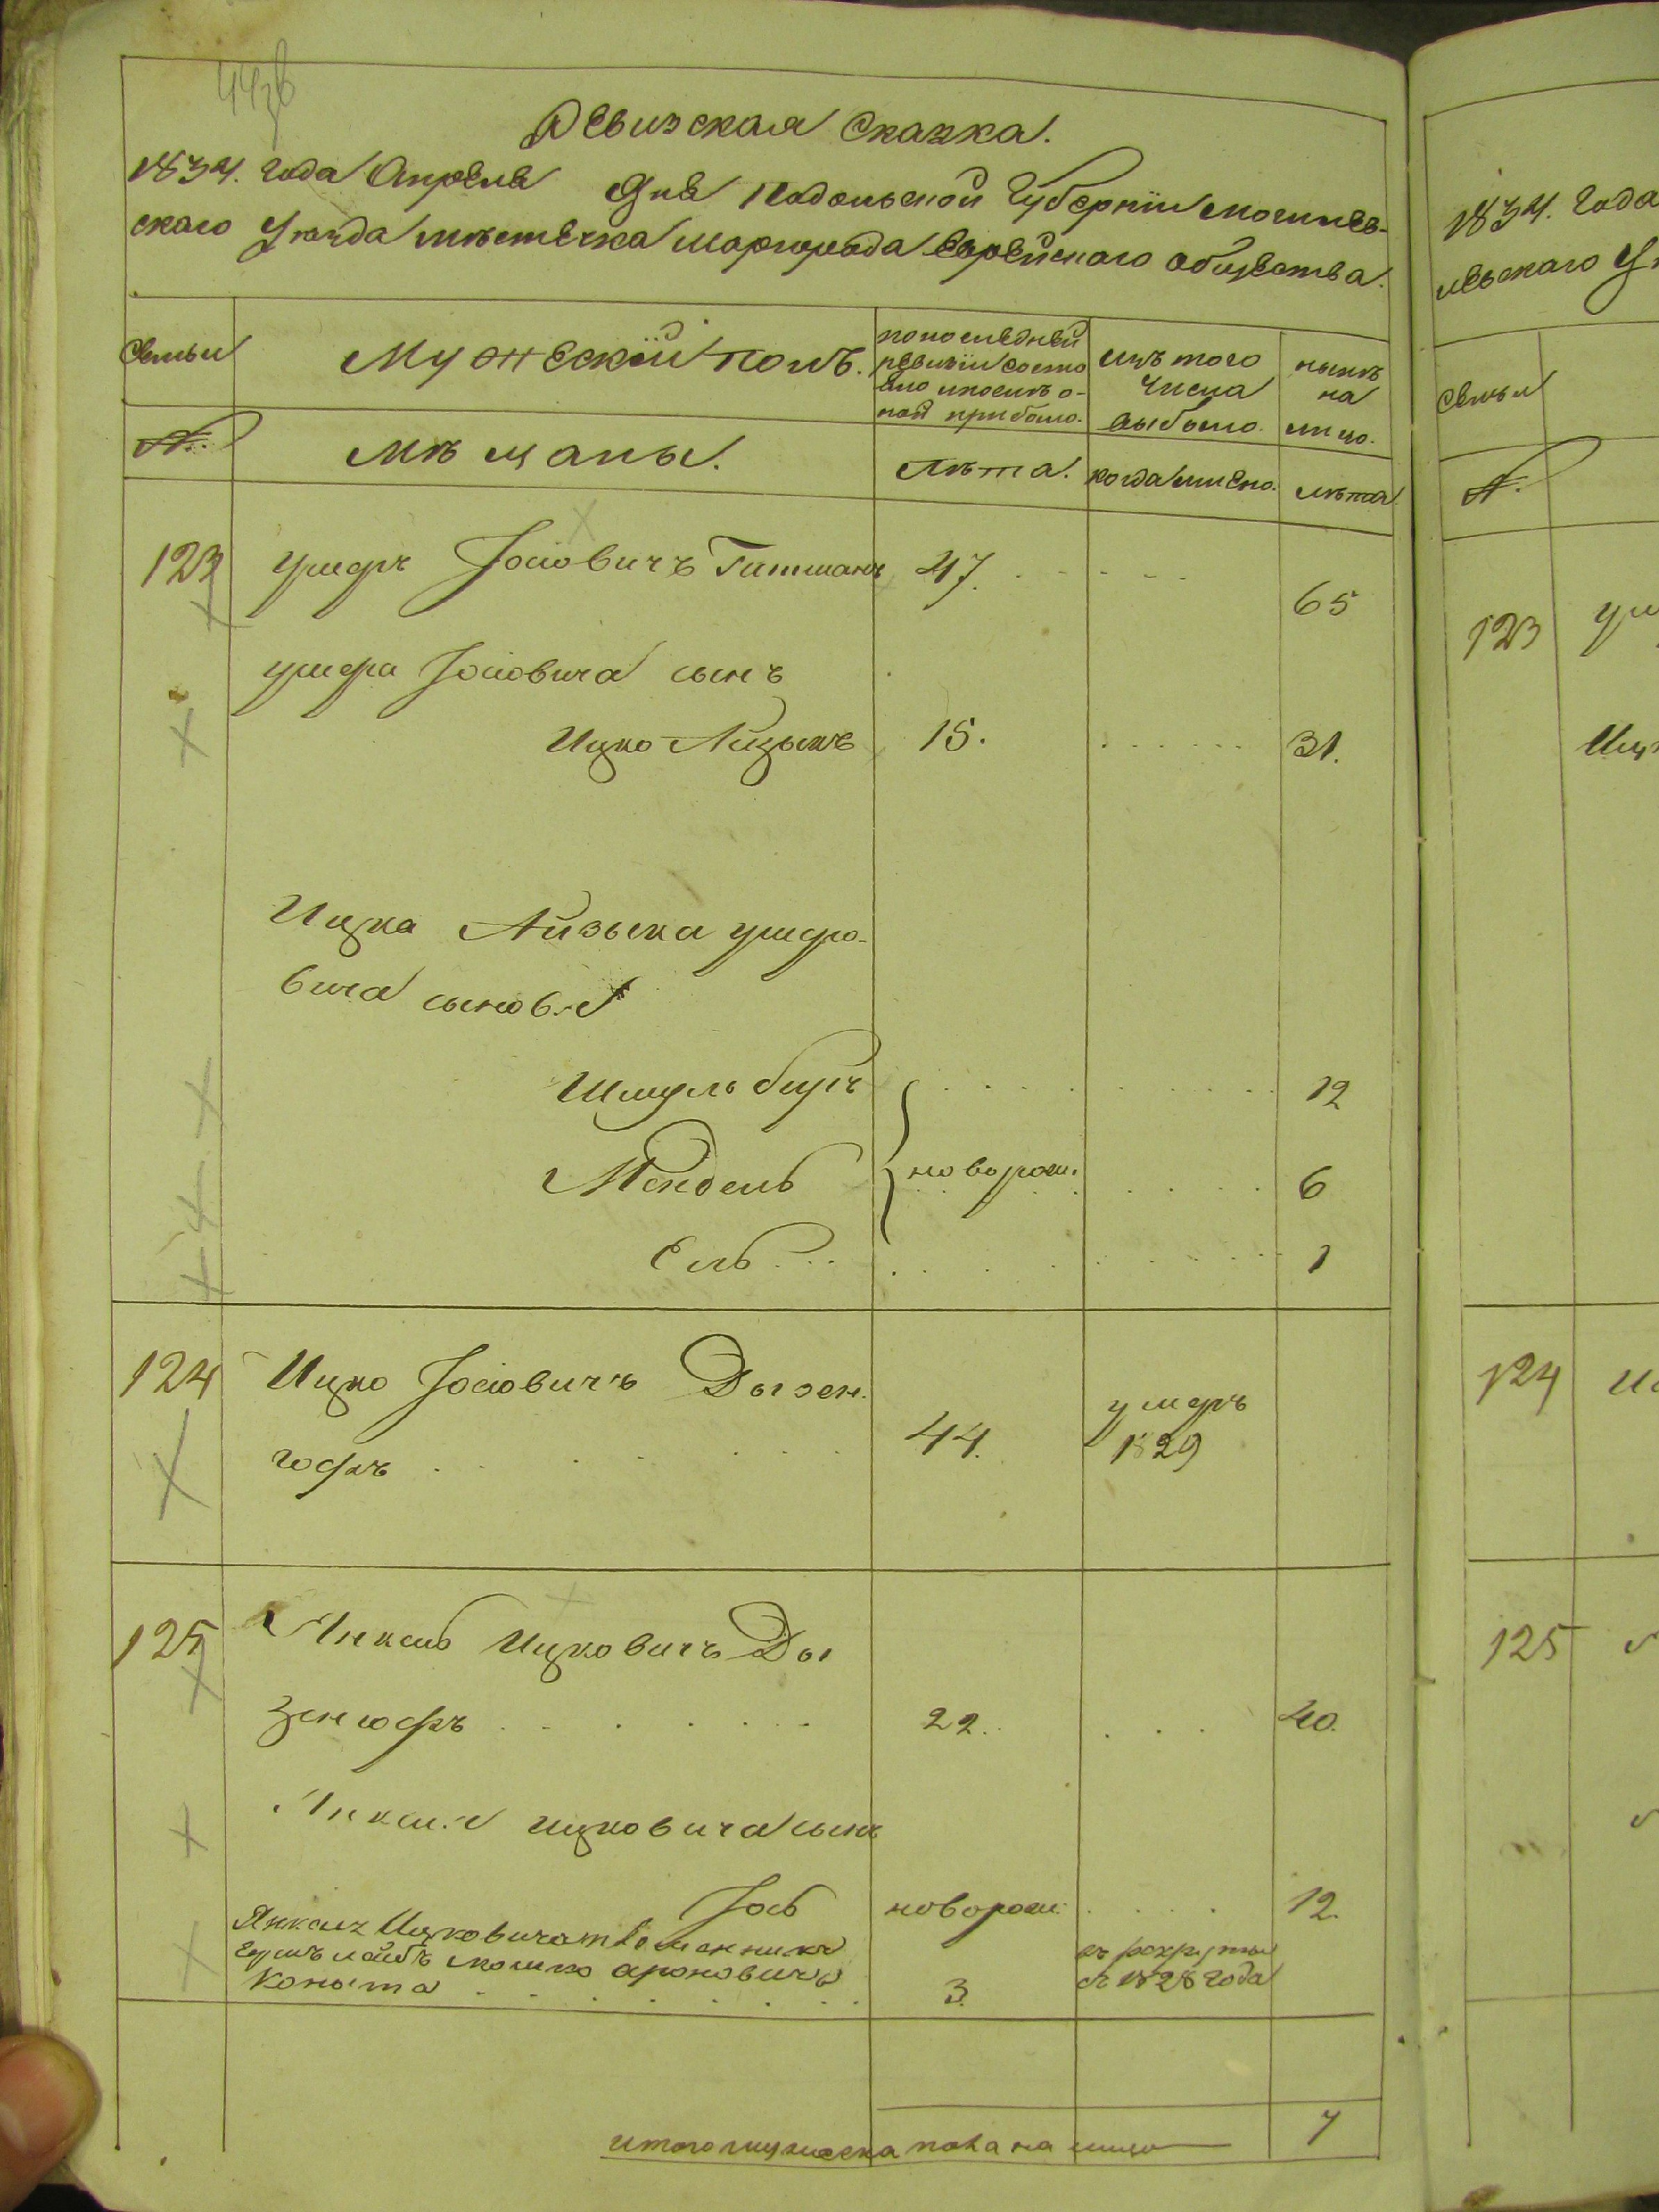 Ревизская Сказка.
1834. года Апреля дня Подольской Губерніи могилев-
скаго уѣзда мѣстечка шаргорода Еврейскаго общества.
Семьи
Мужескій полъ.
по последней
ревизіи состо
яло и после о-
ной прибыло.
изъ того
числа
выбыло.
нынѣ
на
лицо.
№.
мѣщаны.
Лѣта. когда имено. лѣта.
123 ушеръ Іосіовичъ Гитманъ 47. 65
ушера Іосіовича сынъ
Ицко Айзыкъ 15. 31.
Ицка Айзыка ушеро-
вича сыновья
Шмуль беръ 12
Мендель новорож. 6
Ель 1
124 Ицко Іосіовичъ Дызен.
гофъ 44. умеръ
1829
125 Янкель Ицковичъ Ды
зенгофъ 22. 40.
Янкеля ицковича сынъ
Іось новорож. 12.
Янкеля Ицковича племенникъ
мошко ароновичъ
Копыта 3. въ рекруты
съ 1828 года
итого мужеска пола на лицо 7
1834. года
левскаго
Семьи
№.
123
124
125